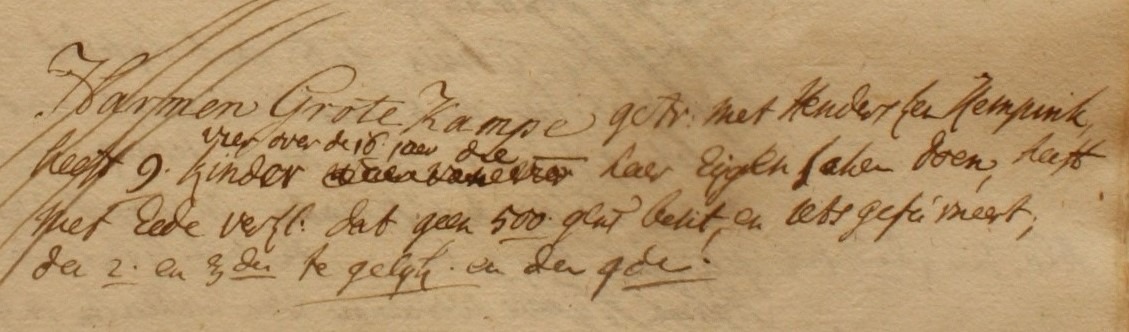 Harmen Grote Kampe getr. met Henders ten Hempink,
vier over de 18 jaer die
heeft 9. kinder haer Eigen saken doen, heeft
met Eede verkl. dat geen 500 glns besit, en iets gefirmeert,
der 2. en 3 den te gelijk. en den 9de.